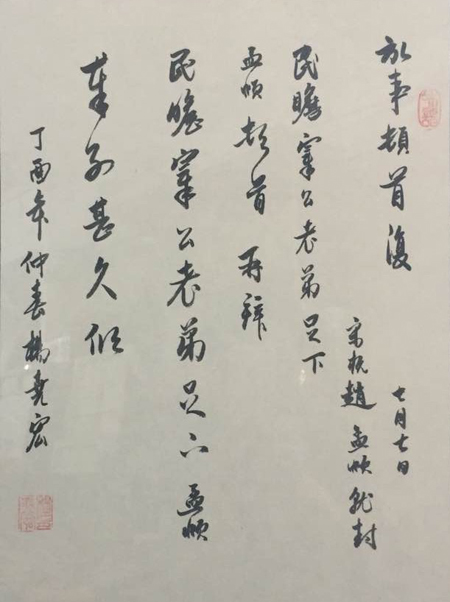 記事頓首復
七月七日
趙孟頫就封
民瞻宰公老弟足下
孟頫頓首再拜
民瞻宰公老弟足下孟頫
奉別甚久傾
丁酉年仲春楊宏